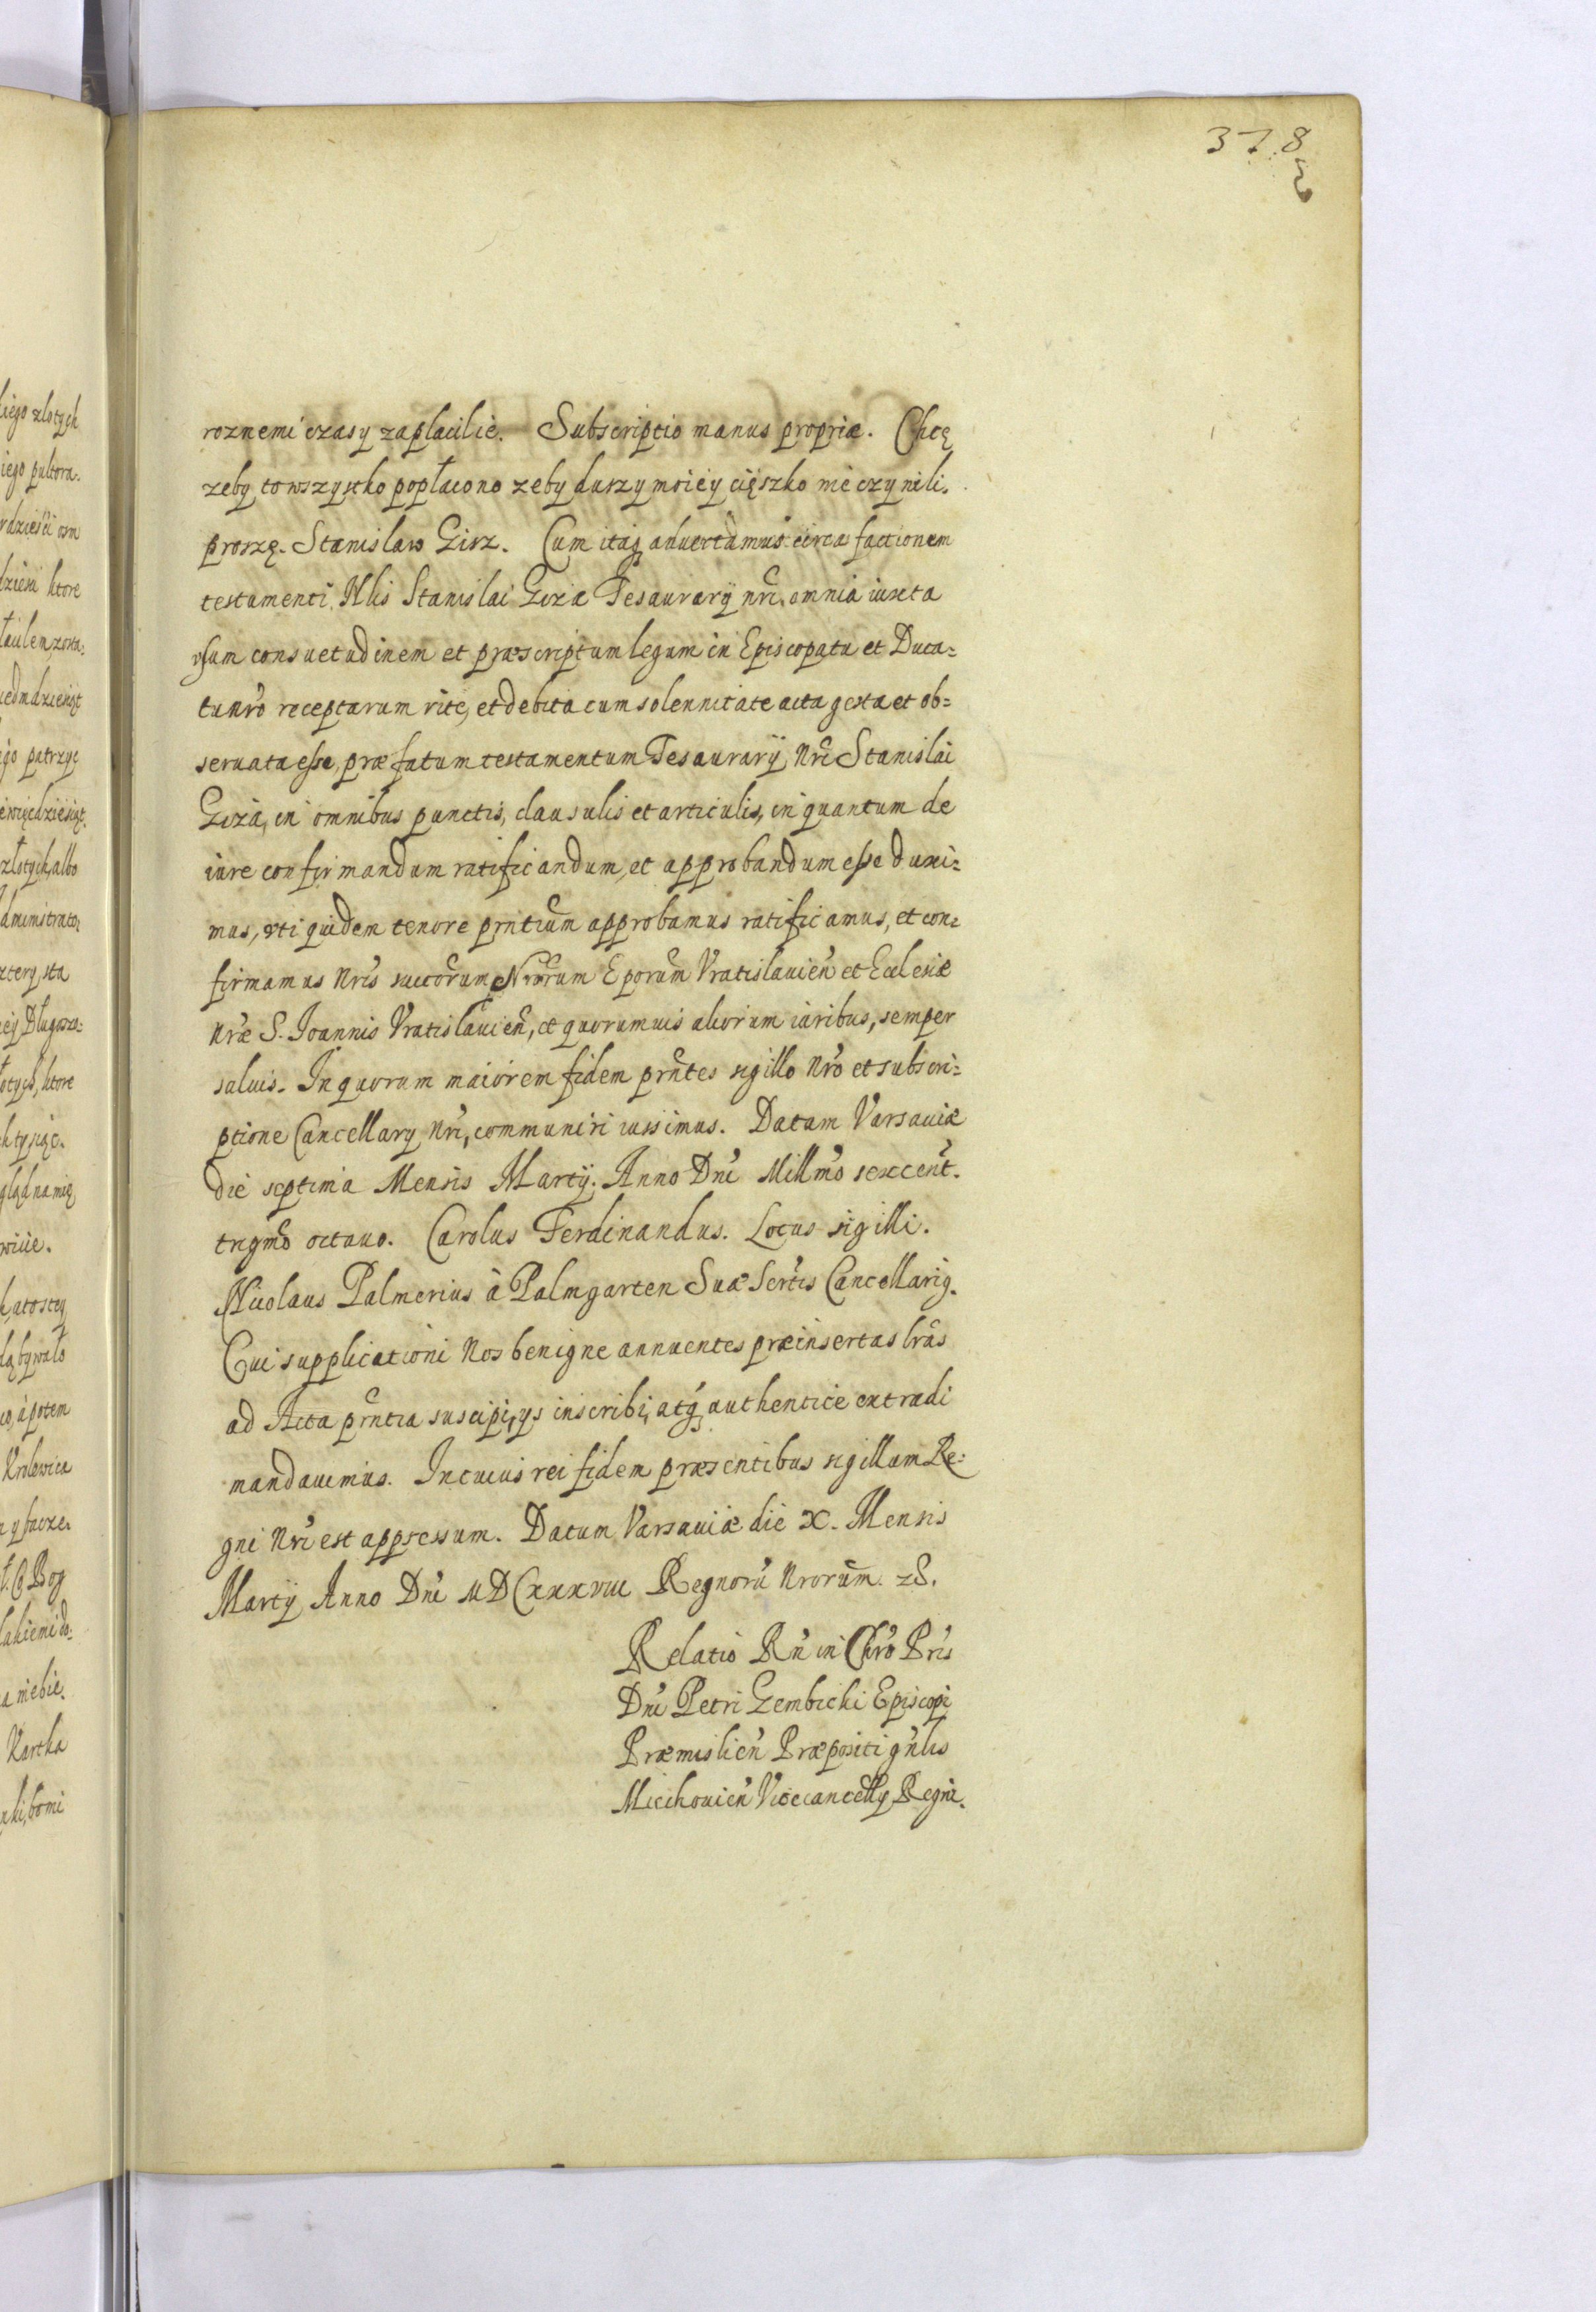 378
roznemi czasy zaplacilie. Subscriptio manus propriæ. Chcę
zeby to wszystko popłacono zeby duszy moiey cięszko nie czynili.
proszę. Stanislaw Gisz. Cum itaq; aduertamus circa factionem
testamenti Nlis Stanislai Giza Tesaurarij nri, omnia iuxta
vsum consuetudinem et præscriptum legum in Episcopatu et Duca=
tu nro receptarum rite, et debita cum solennitate acta gesta et ob=
seruata esse, præfatum testamentum Tesaurarij Nri Stanislai
Giza, in omnibus punctis, clausulis et articulis, in quantum de
iure confirmandum ratificandum, et approbandum esse duxi=
mus, vti quidem tenore prntium approbamus ratificamus, et con=
firmamus Nris succorum Nrorum Eporum Vratislauien et Ecclesiæ
Nræ S. Joannis Vratislauien, et quorumuis aliorum iuribus, semper
saluis. In quorum maiorem fidem prntes sigillo Nro et subscri=
ptione Cancellarij Nri, communiri iussimus. Datum Varsauiæ
die septima Mensis Martij. Anno Dni Millmo sexcent.
trigmo octauo. Carolus Ferdinandus. Locus sigilli.
Nicolaus Palmerius à Palmgarten Suæ Sertis Cancellarig.
Cui supplicationi Nos benigne annuentes præinsertas lras
ad Acta prntia suscipi, ijs inscribi, atq; authentice extradi
mandauimus. In cuius rei fidem præsentibus sigillum Re=
gni Nri est appressum. Datum Varsauiæ die X. Mensis
Martij Anno Dni MDCxxxviii Regnorū Nrorum. zδ.
Relatio Rn in Chro Pris
Dni Petri Gembicki Episcopi
Præmislien Præpositi gnlis
Miechouien Vicecancellrij Regni.